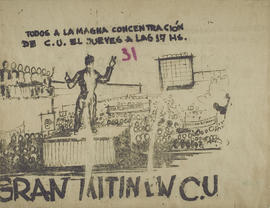 TODOS A LA MAGNA CONCENTRACIÓN
DE C.U. EL JUEVES A LAS 17 HS.
31
GRAN MITIN EN C.U